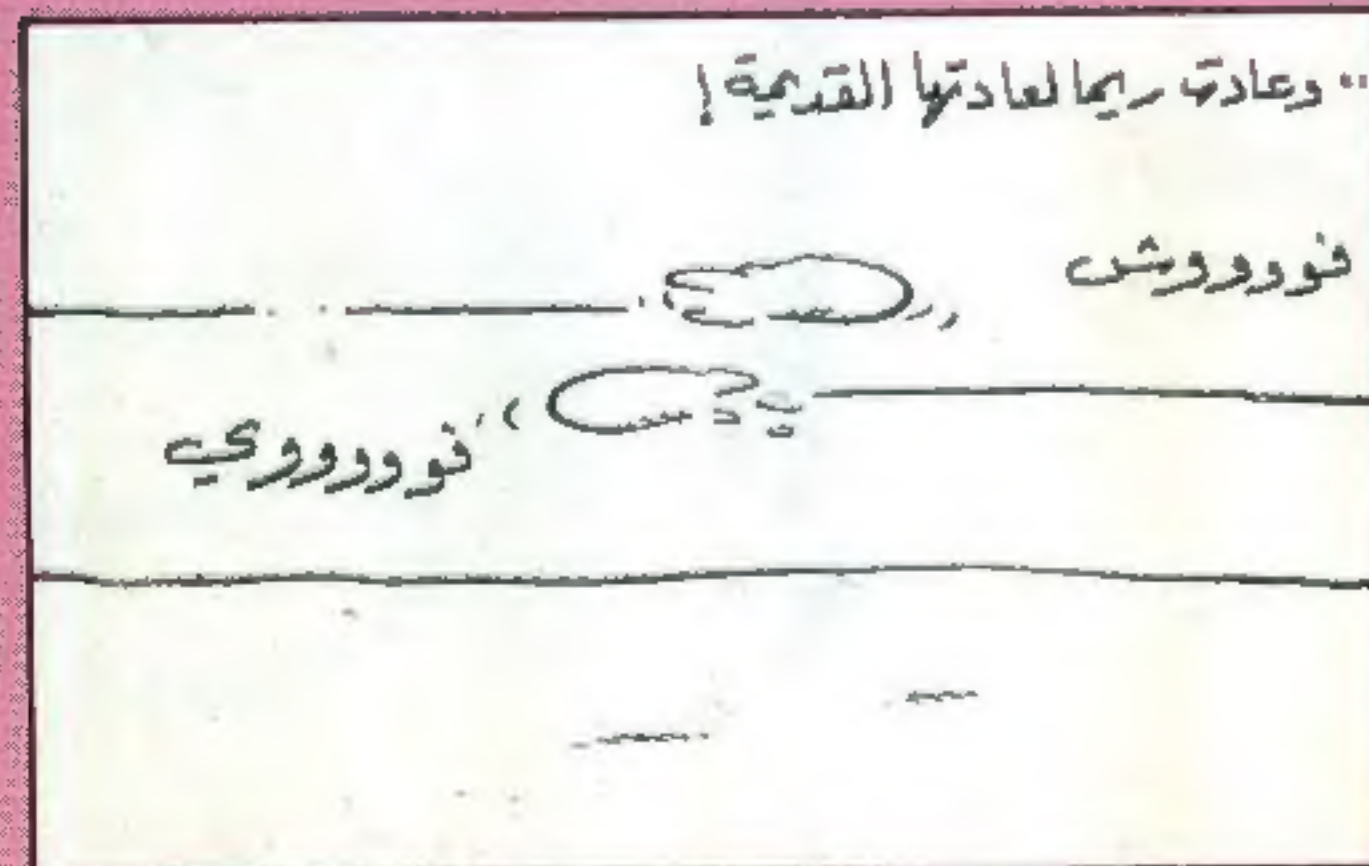 .. وعادت ريما لعادتها القديمة !
فوووووش
فووووووي